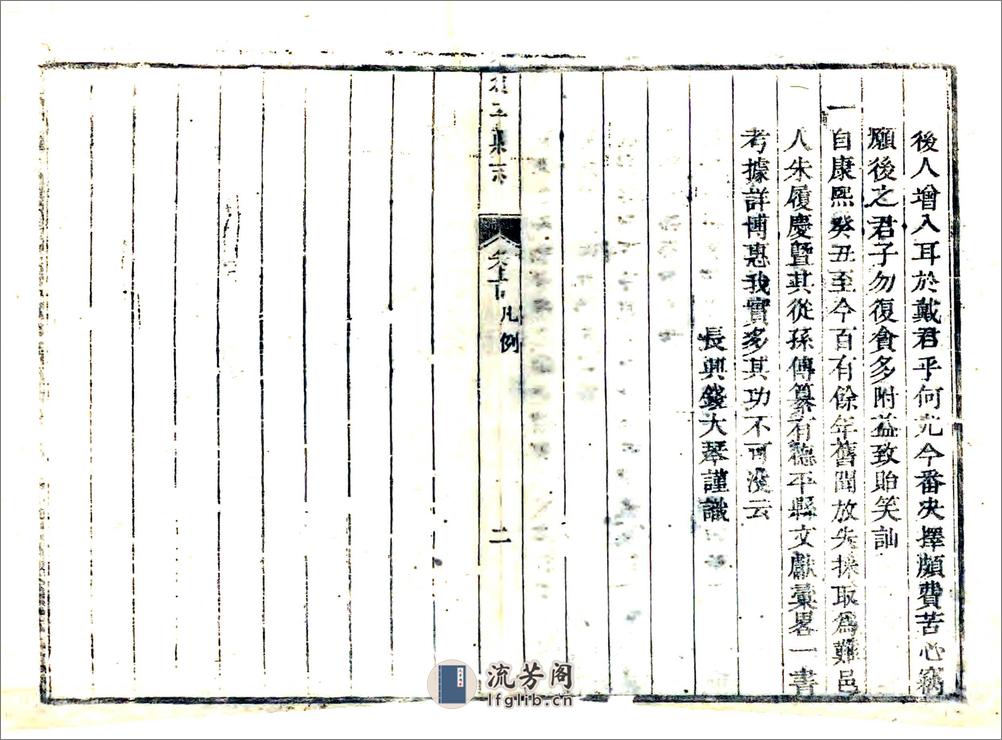 後人增入耳於戴君乎何尤今番决擇頗費苦心竊
願後之君子勿復貪多附益致貽笑訕
一自康熙癸丑至今百有餘年舊聞放失採取爲難邑
人朱履慶暨其從孫傳纂有德平縣文獻藁畧一書
考據詳博惠我實多其功不可沒云
長興錢大琴謹識
凡例
二
流芳阁
lfglib.cn